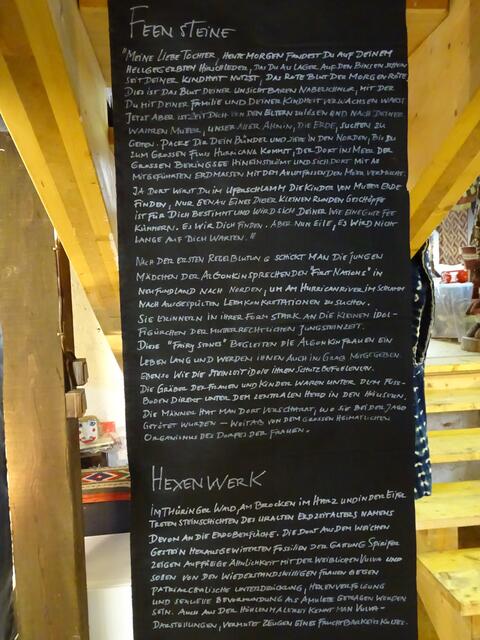 FEENSTEINE
"MEINE LIEBE TOCHTER, HEUTE MORGEN FANDEST DU AUF DEINEM
HELLGEGERBTEN HIRSCHLEDER, DAS DU ALS LAGER AUF DEN BINSEN SCHON
SEIT DEINER KINDHEIT NUTZST, DAS ROTE BLUT DER MORGENRÖTE.
DIES IST DAS BLUT DEINER UNSICHTBAREN NABELSCHNUR, MIT DER
DU MIT DEINER FAMILIE UND DEINER KINDHEIT VERWACHSEN WARST.
JETZT ABER IST ZEIT DICH VON DEN ELTERN ZU LÖSEN UND NACH DEINER
WAHREN MUTTER, UNSER ALLER AHNIN, DIE ERDE, SUCHEN ZU
GEHEN. PACKE DIR DEIN BÜNDEL UND ZIEHE IN DEN NORDEN, BIS DU
ZUM GROSSEN FLUSS HURRICANA KOMMST, DER DORT INS MEER DER
GROSSEN BERINGSEE HINEINSTRÖMT UND SICH DORT MIT
MITGEFÜHRTEN ERDMASSEN MIT DEM ALUMFASSENDEN MEER VERMISCHT.
JA DORT WIRST DU IM UFERSCHLAMM DIE KINDER VON MUTTER ERDE
FINDEN, NUR GENAU EINES DIESER KLEINEN RUNDEN GESCHÖPFE
IST FÜR DICH BESTIMMT UND WIRD SICH DEINER WIE EINE GUTE FEE
KÜMMERN. ES WIRD DICH FINDEN. ABER NUN EILE, ES WIRD NICHT
LANGE AUF DICH WARTEN."
NACH DER ERSTEN REGELBLUTUNG SCHICKT MAN DIE JUNGEN
MÄDCHEN DER ALGONKINSPRECHENDEN "FIRST NATIONS" IN
NEUFUNDLAND NACH NORDEN, UM AM HURRICANRIVER IM SCHLAMM
NACH AUSGESPÜLTEN LEHMKONKRETATIONEN ZU SUCHEN.
SIE ERINNERN IN IHRER FORM STARK AN DIE KLEINEN IDOL-
FIGÜRCHEN DER MUTTERRECHTLICHEN JUNGSTEINZEIT.
DIESE "FAIRY STONES" BEGLEITEN DIE ALGONKINFRAUEN EIN
LEBEN LANG UND WERDEN IHNEN AUCH INS GRAB MITGEGEBEN.
EBENSO WIE DIE STEINZEITIDOLE IHREN SCHUTZBEFOHLENEN.
DIE GRÄBER DER FRAUEN UND KINDER WAREN UNTER DEM FUSS-
BODEN DIREKT UNTER DEM ZENTRALEN HERD IN DEN HÄUSERN.
DIE MÄNNER HAT MAN DORT VERSCHARRT, WO SIE BEI DER JAGD
GETÖTET WURDEN – WEITAB VON DEM GROSSEN HEIMATLICHEN
ORGANISMUS DES DORFES DER FRAUEN.
HEXENWERK
IM THÜRINGER WALD, AM BROCKEN IM HARZ UND IN DER EIFEL
TRETEN STEINSCHICHTEN DES URALTEN ERDZEITALTERS NAMENS
DEVON AN DIE ERDOBERFLÄCHE. DIE DORT AUS DEM WEICHEN
GESTEIN HERAUSGEWITTERTEN FOSSILIEN DER GATTUNG SPIRIFER
ZEIGEN AUFFÄLLIGE ÄHNLICHKEIT MIT DER WEIBLICHEN VULVA UND
SOLLEN VON DEN WIEDERSTANDSWILLIGEN FRAUEN GEGEN
PATRIARCHALISCHE UNTERDRÜCKUNG, HEXENVERFOLGUNG
UND SEXUELLE BEVORMUNDUNG ALS AMULETTE GETRAGEN WORDEN
SEIN. AUCH AUS DER HÖHLENMALEREI KENNT MAN VULVA-
DARSTELLUNGEN, VERMUTET ZEUGEN EINES FRUCHTBARKEITSKULTES.